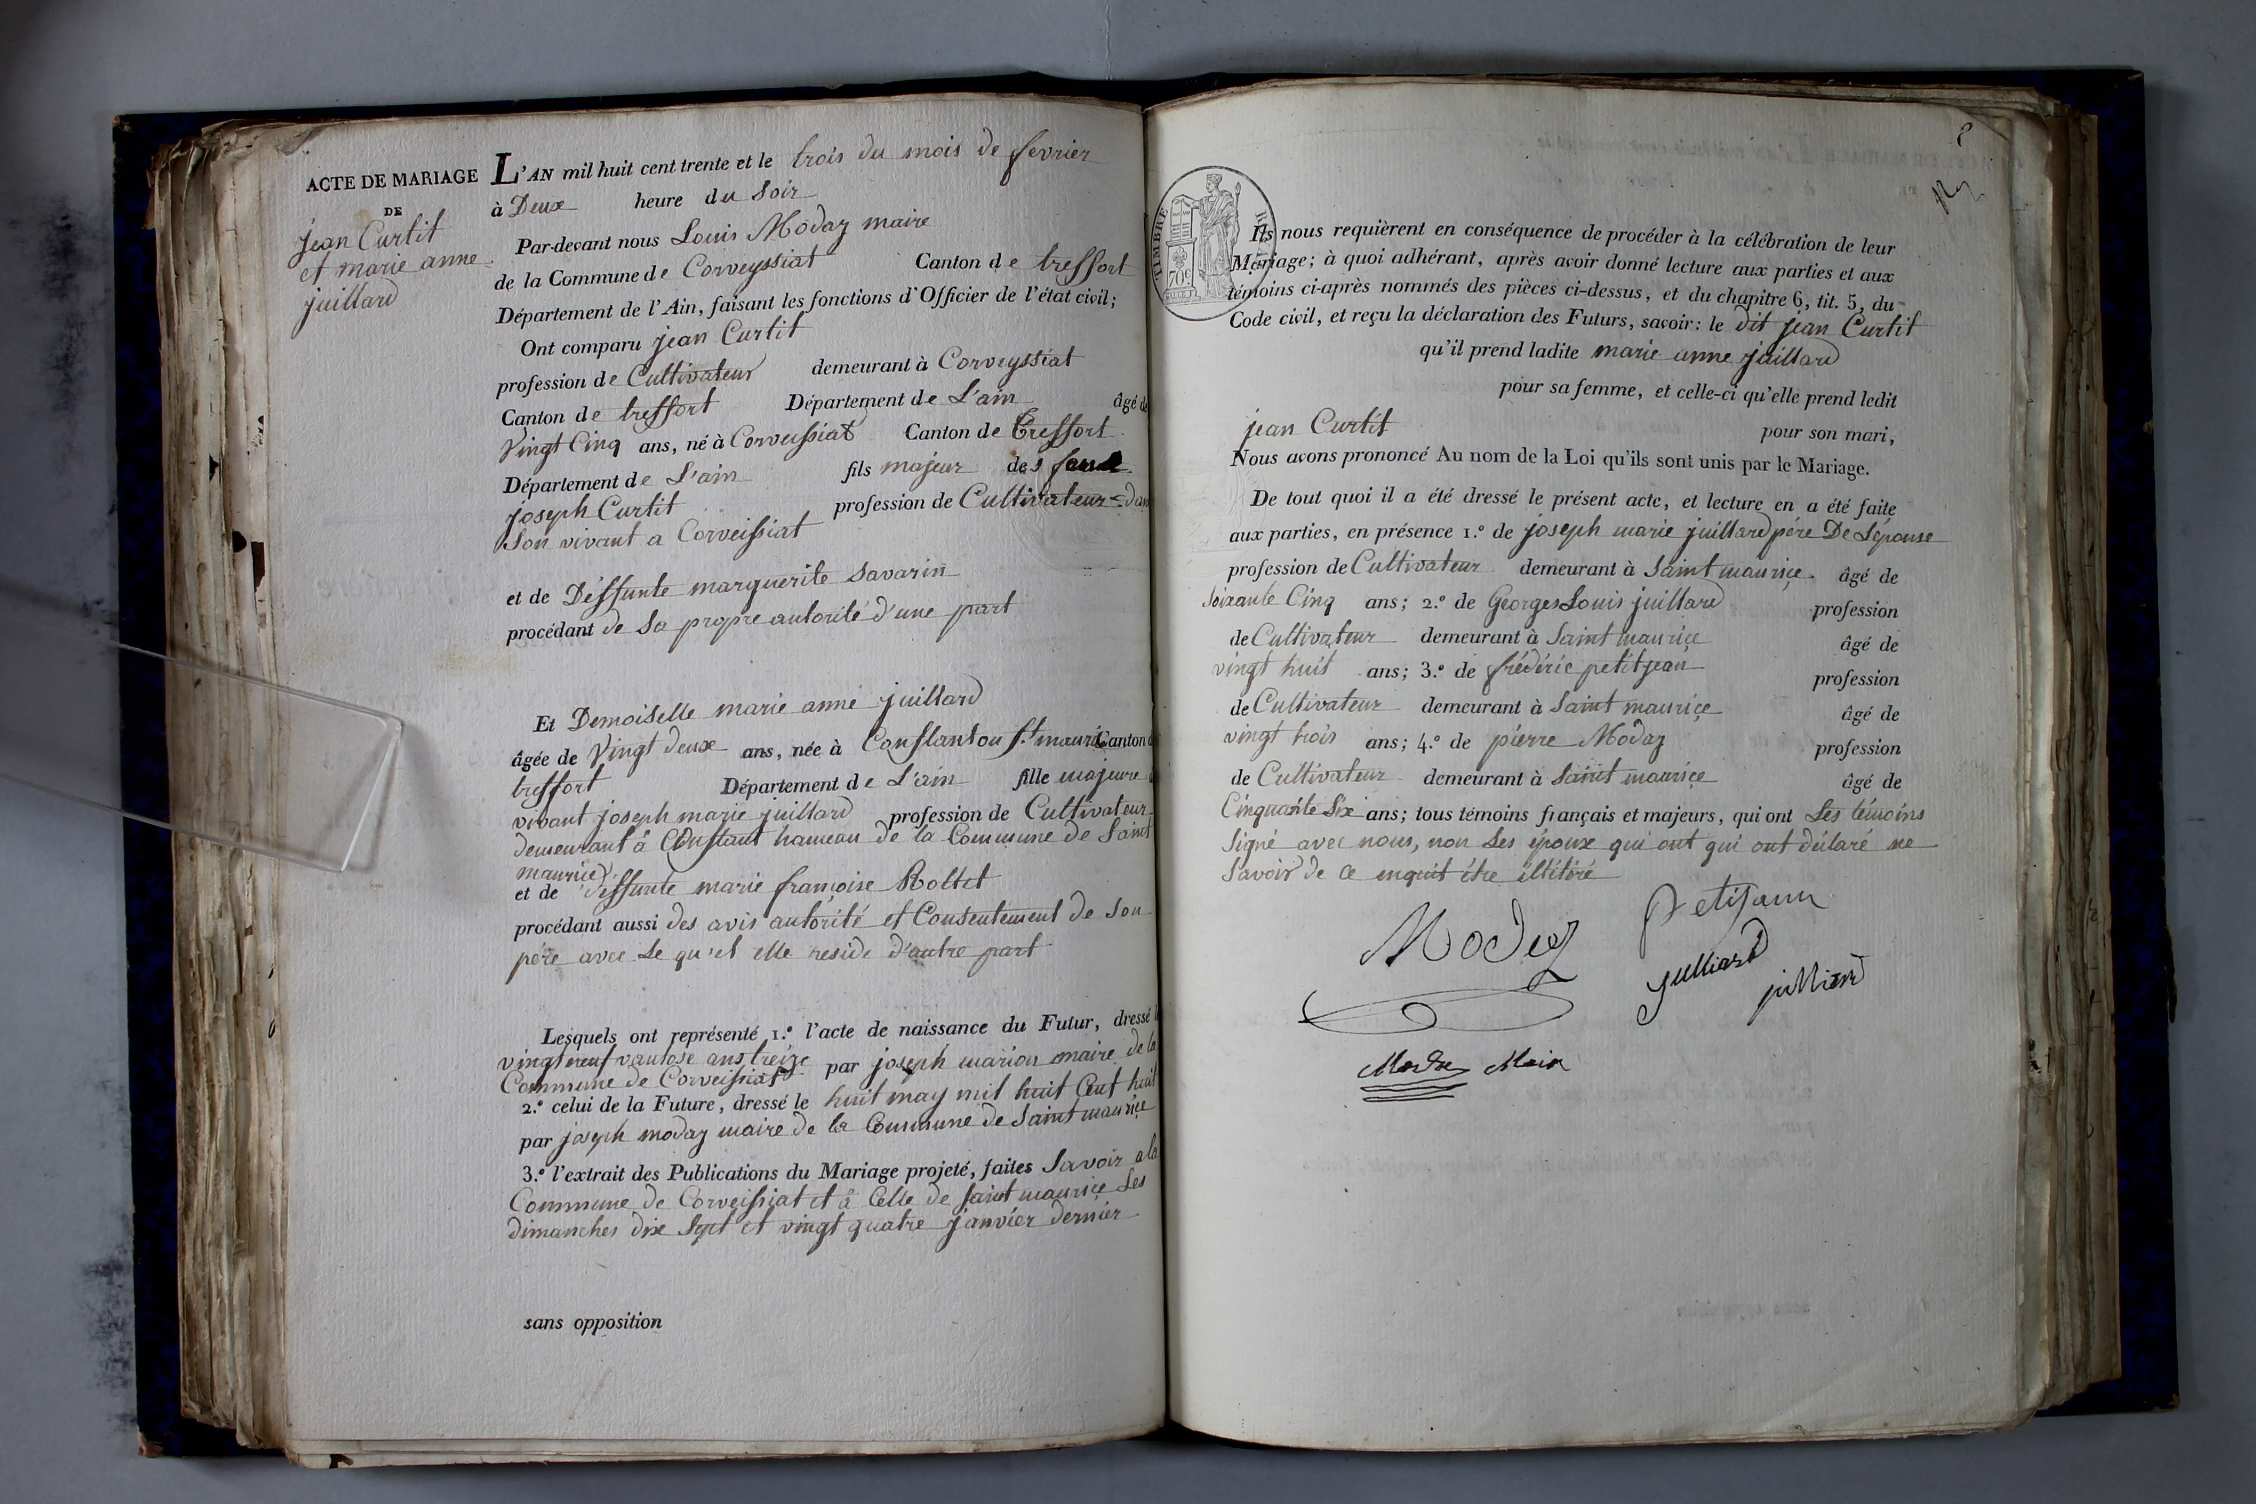 ACTE DE MARIAGE
DE
jean Curtit
et marie anne
juillard
L'AN mil huit cent trente et le trois du mois de fevrier
à Deux heure du soir
Par-devant nous Louis Moday maire
de la Commune de Corveyssiat Canton de treffort
Département de l'Ain, faisant les fonctions d'Officier de l'état civil;
Ont comparu jean Curtit
profession de Cultivateur demeurant à Corveyssiat
Canton de treffort Département de L'ain âgé de
Vingt Cinq ans, né à Corveissiat Canton de Treffort
Département de L'ain fils majeur des
joseph Curtit profession de Cultivateur dans
Son vivant a Corveissiat
et de Déffunte marguerite Savarin
procédant de sa propre autorité d'une part
Et Demoiselle marie anne juillard
âgée de Vingt deux ans, née à St mauri Canton d
treffort Département de L'ain fille majeure
vivant joseph marie juillard profession de Cultivateur
demeurant à Constant hameau de la Commune de Saint
maurice
et de déffunte marie françoise Roltet
procédant aussi des avis autorité et Consentement de son
pére avec Le qu'el elle reside d'autre part
Lesquels ont représenté 1.° l'acte de naissance du Futur, dressé l
vingt neuf vantose ans treize par joseph marion maire de la
Commune de Corveissiat
2.° celui de la Future, dressé le huit may mil huit Cent huit
par joseph moday maire de la Commune de Saint maurice
3.° l'extrait des Publications du Mariage projeté, faites Savoir a la
Commune de Corveissiat et à Celle de saint maurice Les
dimanches dix Sept et vingt quatre janvier dernier
sans opposition
8
TIMBRE
70c
Ils nous requièrent en conséquence de procéder à la célébration de leur
Mariage; à quoi adhérant, après avoir donné lecture aux parties et aux
témoins ci-après nommés des pièces ci-dessus, et du chapitre 6, tit. 5, du
Code civil, et reçu la déclaration des Futurs, savoir: le dit jean Curtit
qu'il prend ladite marie anne juillard
pour sa femme, et celle-ci qu'elle prend ledit
jean Curtit pour son mari,
Nous avons prononcé Au nom de la Loi qu'ils sont unis par le Mariage.
De tout quoi il a été dressé le présent acte, et lecture en a été faite
aux parties, en présence 1.° de joseph marie juillard pére De L'épouse
profession de Cultivateur demeurant à Saint maurice âgé de
Soixante Cinq ans; 2.° de Georges Louis juillard profession
de Cultivateur demeurant à Saint maurice âgé de
vingt huit ans; 3.° de frédéric petitjean profession
de Cultivateur demeurant à Saint maurice âgé de
vingt trois ans; 4.° de pierre Moday profession
de Cultivateur demeurant à Saint maurice âgé de
Cinquante Six ans; tous témoins français et majeurs, qui ont Les témoins
Signé avec nous, non Les époux qui ont qui ont déclaré ne
Savoir de ce enquit étre illitéré
Moday Petijann
julliard
julliard
Moday Maire